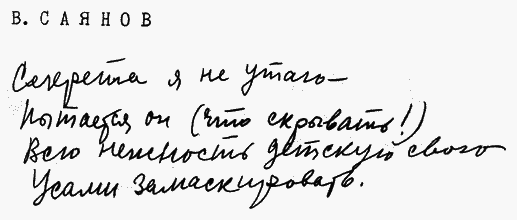 В. САЯНОВ
Секрета я не утаю —
Пытается он (что скрывать!)
Всю нежность детскую свою
Усами замаскировать.